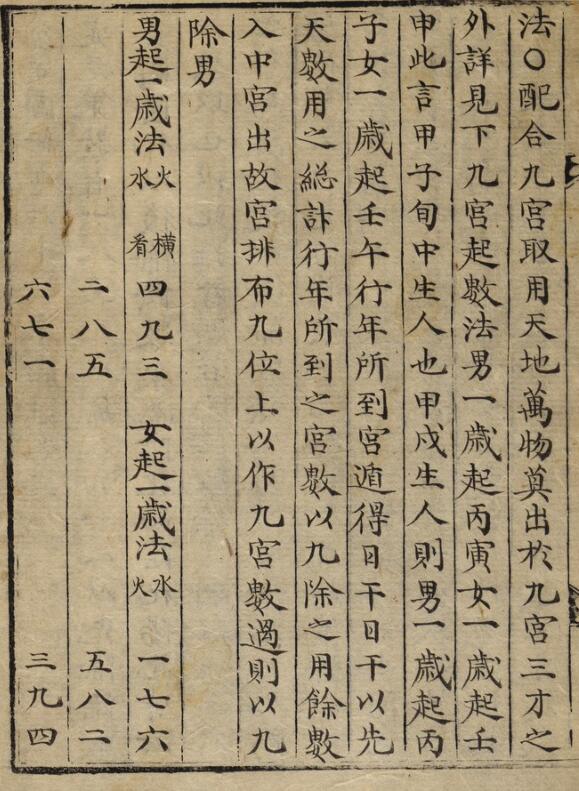 法○配合九宮取用天地萬物莫出於九宮三才之
外詳見下九宮起數法男一歲起丙寅女一歲起壬
申此言甲子旬中生人也甲戌生人則男一歲起丙
子女一歲起壬午行年所到宮遁得日干日干以先
天數用之総計行年所到之宮數以九除之用餘數
入中宮出故宮排布九位上以作九宮數過則以九
除男
男起一歲法火水 橫看 四九三 女起一歲法水火 一七六
二八五 五八二
六七一 三九四